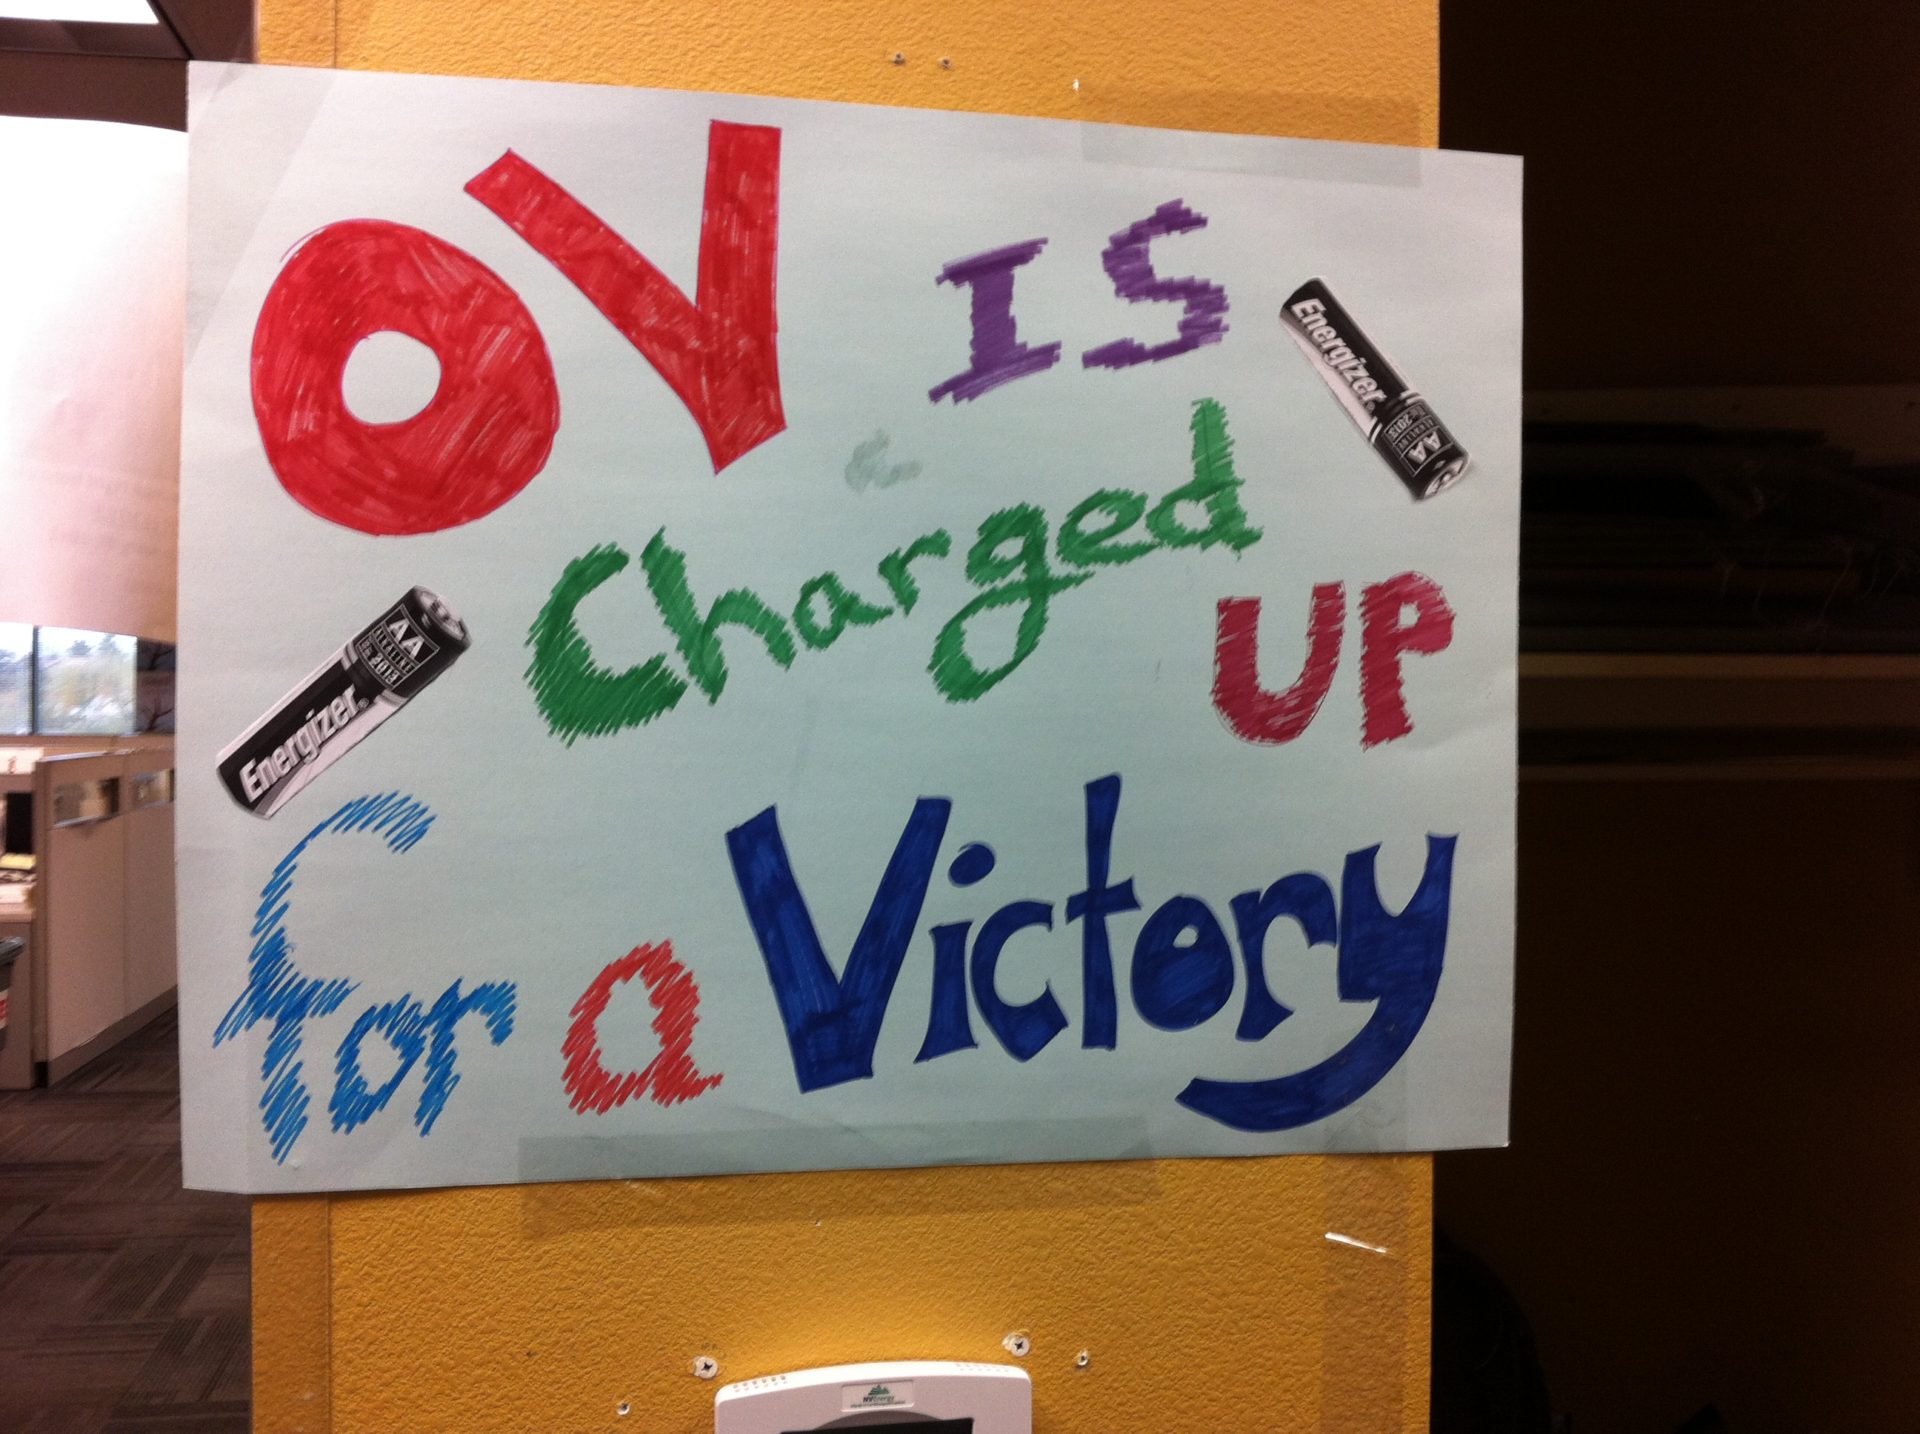 OV IS
Charged
UP
for a Victory
Energizer®
AA
ALKALINE
2013
Energizer®
AA
ALKALINE
2013
NVEnergy